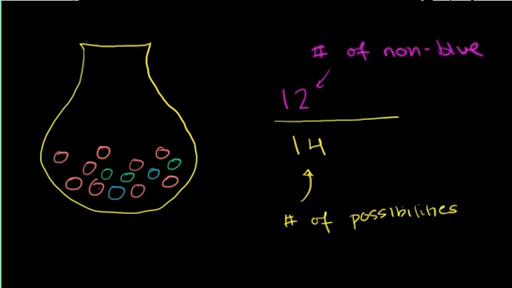 # of non-blue
12
14
# of possibilities